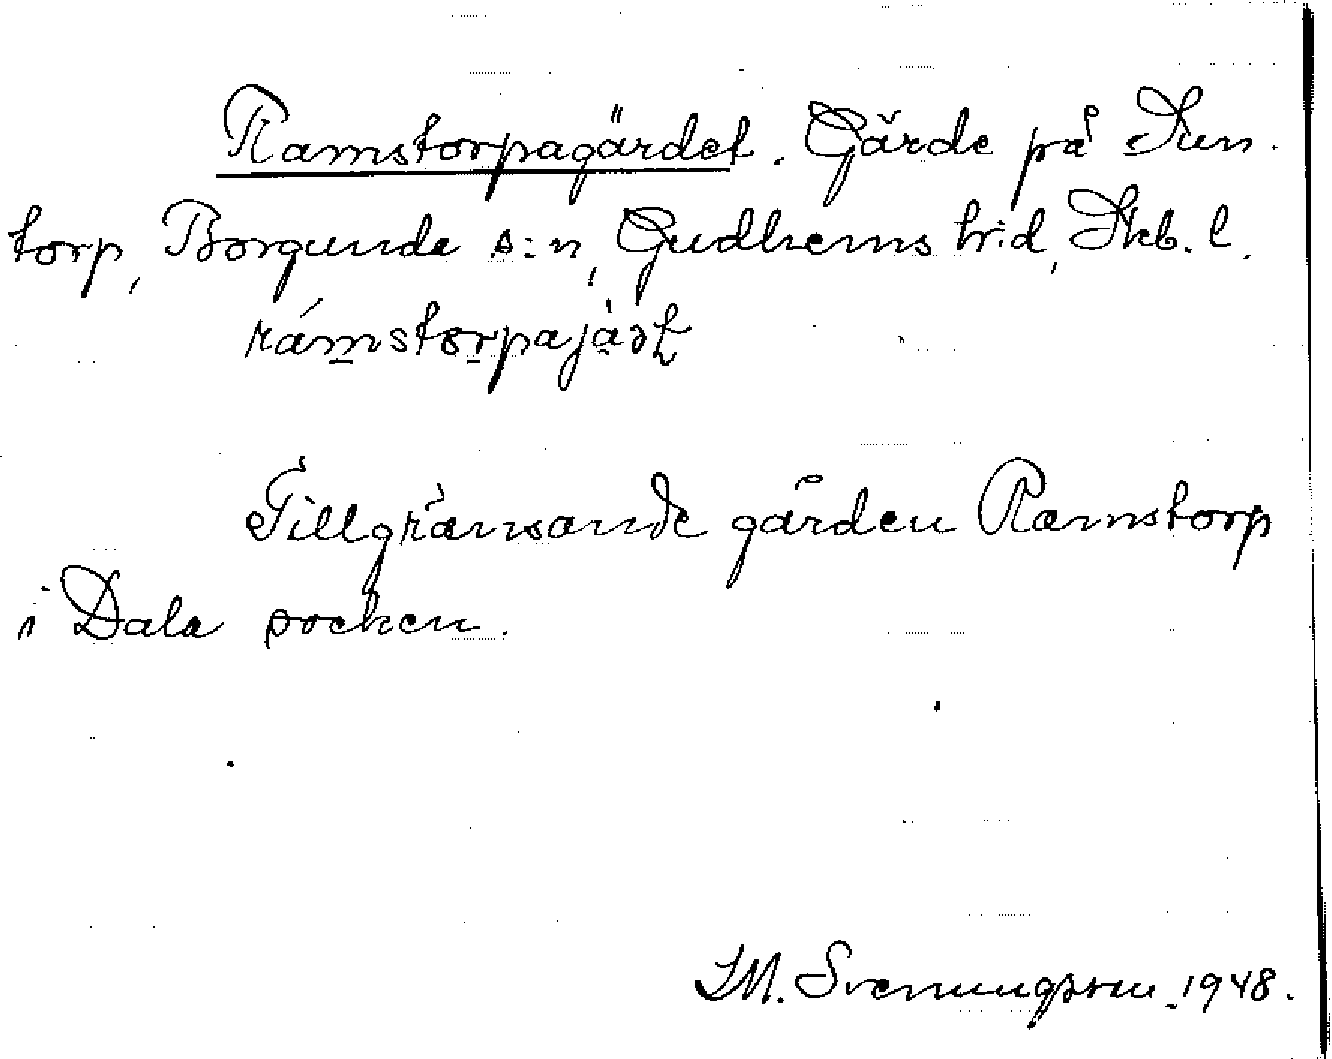 Ramstorpagärdet. Gärde på Sun-
torp, Borgunda s:n, Gudhems h:d, Skb. l.
rámstorpajàdt
Tillgränsande gården Ramstorp
i Dala socken.
I.M. Svenungsson. 1948.